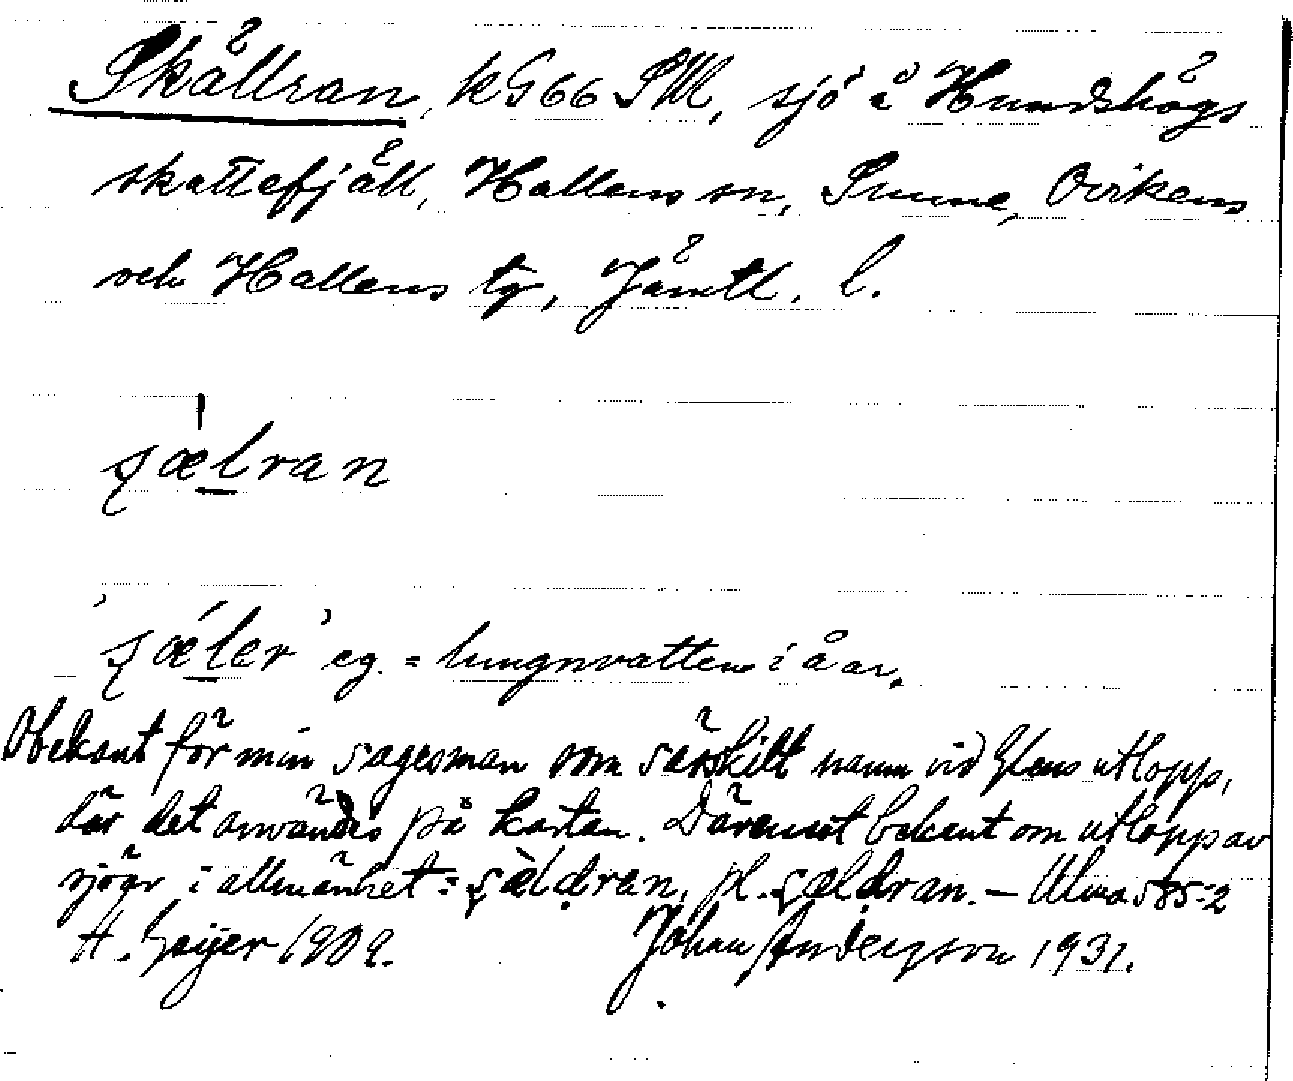 Skällran, kG66 SM, sjö å Hundshögs
skattefjäll, Hallens sn, Sunne, Ovikens
och Hallens tg, Jämtl. l.
ʂæ̀lran
'ʂæ̀ler' eg. = lungnvatten i åar.
Obekant för min sagesman som särskilt namn vid utlopp,
där det användes på kartan. Däremot bekant om utlopp av
sjöar i allmänhet = ʂæ̀lḍran, pl. ʂælḍran. — Ulma 585:2
H. Geijer 1909. Johan Anderson 1931.